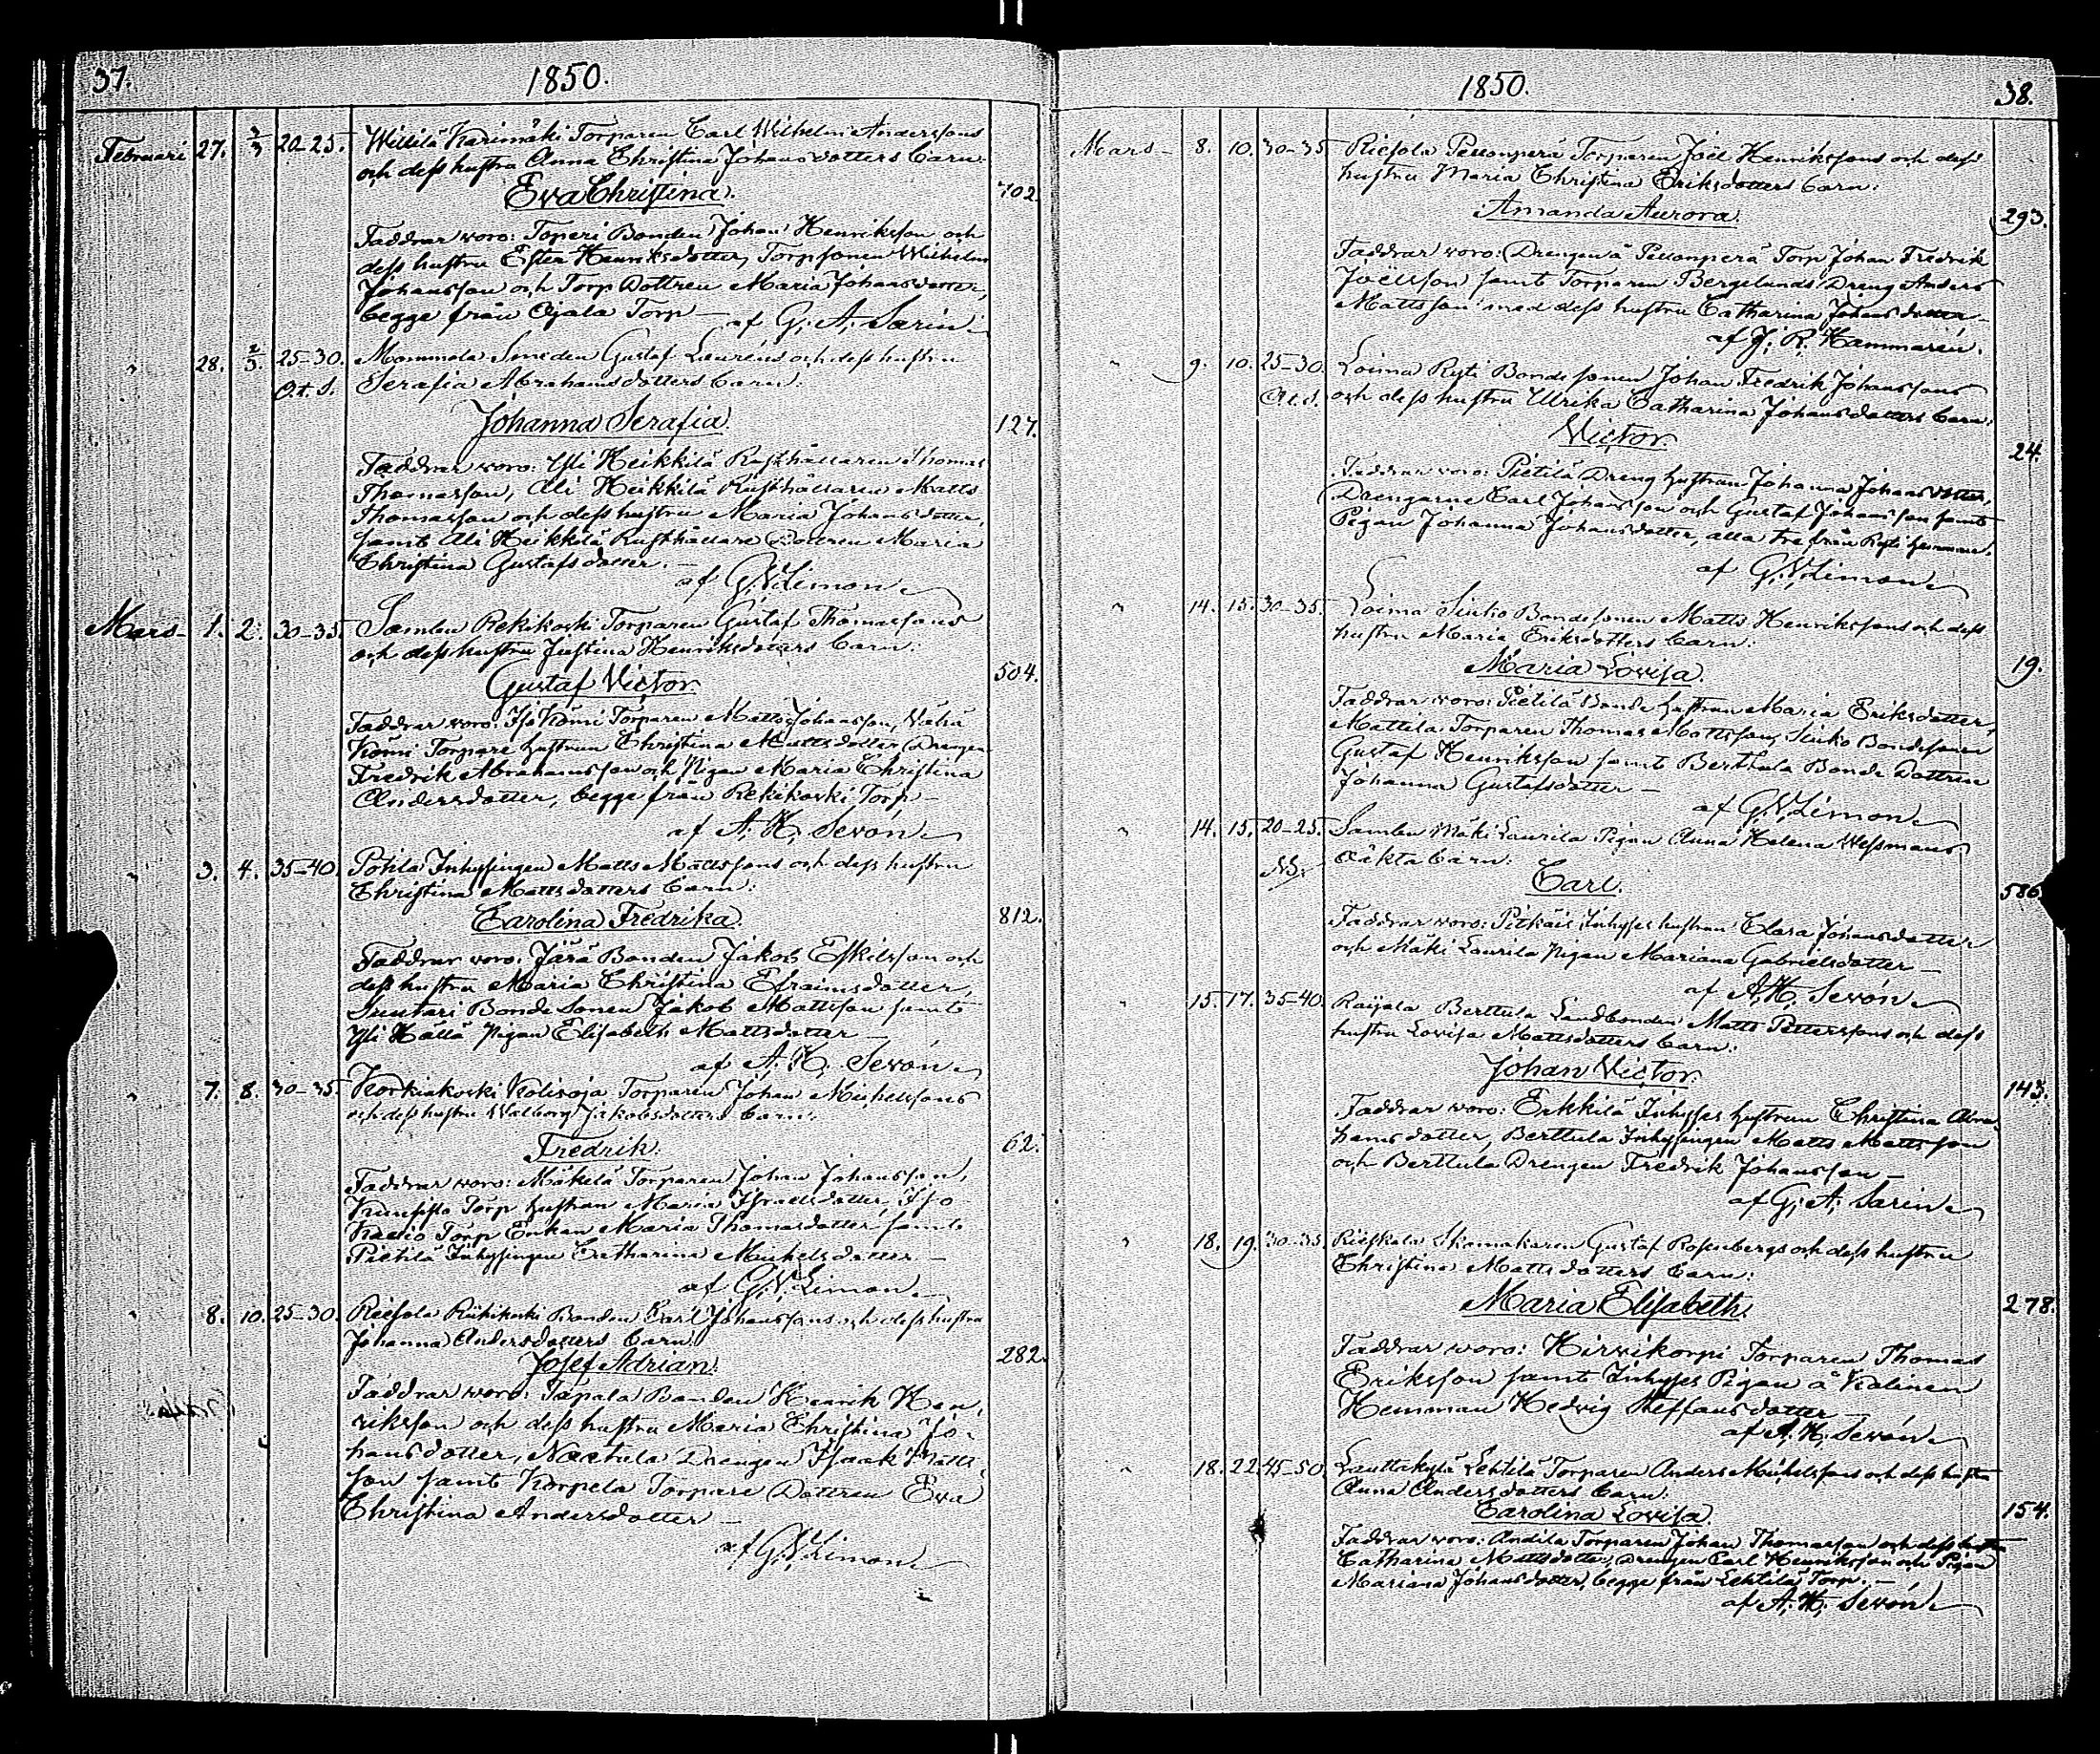 37. 1850.
Februari 27. 2/3 20-25. Willilä Karimäki Torparen Carl Wilhelm Anderssons
och dess hustru Anna Christina Johansdotters barn.
Eva Christina. 702.
Faddrar woro: Toperi Bonden Johan Henriksson och
dess hustru Ester Henriksdotter, Torpsonen Wilhelm
Johansson och Torp Dottren Maria Johansdotter,
begge från Ojala Torp —
af G: A: Sarin.
" 28. 2/3. 25-30. Mommola Smeden Gustaf Laurens och dess hustru
O.t.S. Serafia Abrahamsdotters barn:
Johanna Serafia. 127.
Faddrar woro: Yli Heikkilä Rusthållaren Thomas
Thomasson, Ali Heikkilä Rusthållaren Matts
Thomasson och dess hustru Maria Johansdotter,
samt Ali Heikkilä Rusthållare Dottren Maria
Christina Gustafsdotter. —
af G.W. Limon
Mars 1. 2. 30-35. Samlen Rekikoski Torparen Gustaf Thomassons
och dess hustru Justina Henriksdotters barn:
Gustaf Victor. 504.
Faddrar woro: Iso Kömi Torparen Matts Johansson, Wähä
Kömi Torpare hustrun Christina Mattsdotter, Drengen
Fredrik Abrahamsson och Pigan Maria Christina
Andersdotter, begge från Rekikoski Torp —
af A: H: Sevón
" 3. 4. 35-40. Potila Inhysingen Matts Mattssons och dess hustru
Christina Mattsdotters barn:
Carolina Fredrika. 812.
Faddrar woro: Järä Bonden Jakob Eskilsson och
dess hustru Maria Christina Efraimsdotter,
Suutari Bonde Sonen Jakob Mattsson samt
Yli Källä Pigan Elisabeth Mattsdotter —
af A. H. Sevón
" 7. 8. 30-35. Korkiakoski Kolisoja Torparen Johan Michelssons
och dess hustru Walborg Jakobsdotters barn:
Fredrik. 62.
Faddrar woro: Mäkelä Torparen Johan Johansson,
Torp hustrun Maria Israelsdotter, Iso
Torp Enkan Maria Thomasdotter samt
Pietilä Inhysingen Catharina Michelsdotter —
af G.W. Limon
" 8. 10. 25-30. Riesola Riukikoski Bonden Carl Johanssons och dess hustru
Johanna Andersdotters barn:
Josef Adrian. 282.
Faddrar woro: Tapala Bonden Henrik Hen-
riksson och dess hustru Maria Christina Jo-
hansdotter, Naatula Drengen Isaak Matts-
son samt Korpela Torpare Dottren Eva
Christina Andersdotter —
af G.W. Limon
1850. 38.
Mars 8. 10. 30-35. Riesola Pellonperä Torparen Joël Henrikssons och dess
hustru Maria Christina Eriksdotters barn:
Amanda Aurora. 293.
Faddrar woro: Drengen å Pellonperä Torp Johan Fredrik
Joëlsson samt Torparen Bergelunds Dreng Anders
Mattsson med dess hustru Catharina Johansdotter —
af J. R. Hammarén.
" 9. 10. 25-30. Loima Ryti Bondesonen Johan Fredrik Johanssons
O.t.S. och dess hustru Ulrika Catharina Johansdotters barn:
Victor 24.
Faddrar woro: Pietilä Dreng hustrun Johanna Johansdotter,
Drengarne Carl Johansson och Gustaf Johansson samt
Pigan Johanna Johansdotter, alla tre från Ryti hemman.
af G.W. Limon
" 14. 15. 30-35. Loima Siuko Bondesonen Matts Henrikssons och dess
hustru Maria Eriksdotters barn:
Maria Lovisa. 19.
Faddrar woro: Pietilä Bonde hustrun Maria Eriksdotter,
Mattila Torparen Thomas Mattsson, Siuko Bondesonen
Gustaf Henriksson samt Berthula Bonde Dottren
Johanna Gustafsdotter —
af G.W. Limon
" 14. 15. 20-25. Samlen Mäki Laurila Pigan Anna Helena Wessmans
NB. oäkta barn:
Carl. 586.
Faddrar woro: Pitkäis Inhyses hustrun Clara Johansdotter
och Mäki Laurila Pigan Mariana Gabrielsdotter —
af A. H. Sevón
" 15. 17. 35-40. Raijala Berttula Landbonden Matts Petterssons och dess
hustru Lovisa Mattsdotters barn:
Johan Victor. 143.
Faddrar woro: Erkkilä Inhyses hustrun Christina Abra-
hamsdotter, Berttula Inhysingen Matts Mattsson
och Berttula Drengen Fredrik Johansson —
af G: A: Sarin
" 18. 19. 30-35. Rieskala Skomakaren Gustaf Rosenbergs och dess hustru
Christina Mattsdotters barn:
Maria Elisabeth. 278.
Faddrar woro: Hirvikorpi Torparen Thomas
Eriksson samt Inhyses Pigan å Kalinen
Hemman Hedvig Steffansdotter —
af A. H. Sevón
" 18. 22. 45-50. Lauttakylä Lehtilä Torparen Anders Michelssons och dess hustru
Anna Andersdotters barn:
Carolina Lovisa. 154.
Faddrar woro: Andila Torparen Johan Thomasson och dess hustru
Catharina Mattsdotter, Drengen Carl Henriksson och Pigan
Mariana Johansdotter, begge från Lehtilä Torp. —
af A. H. Sevón